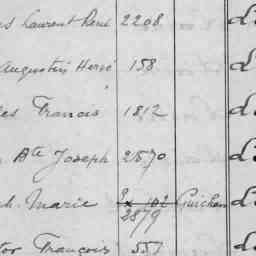 s Laurent René 2208 d
Augustin Hervé 158 d
es Francis 1812 d
Bte Joseph 2570 d
h. Marie Guichen d
2879
tor François 557 d